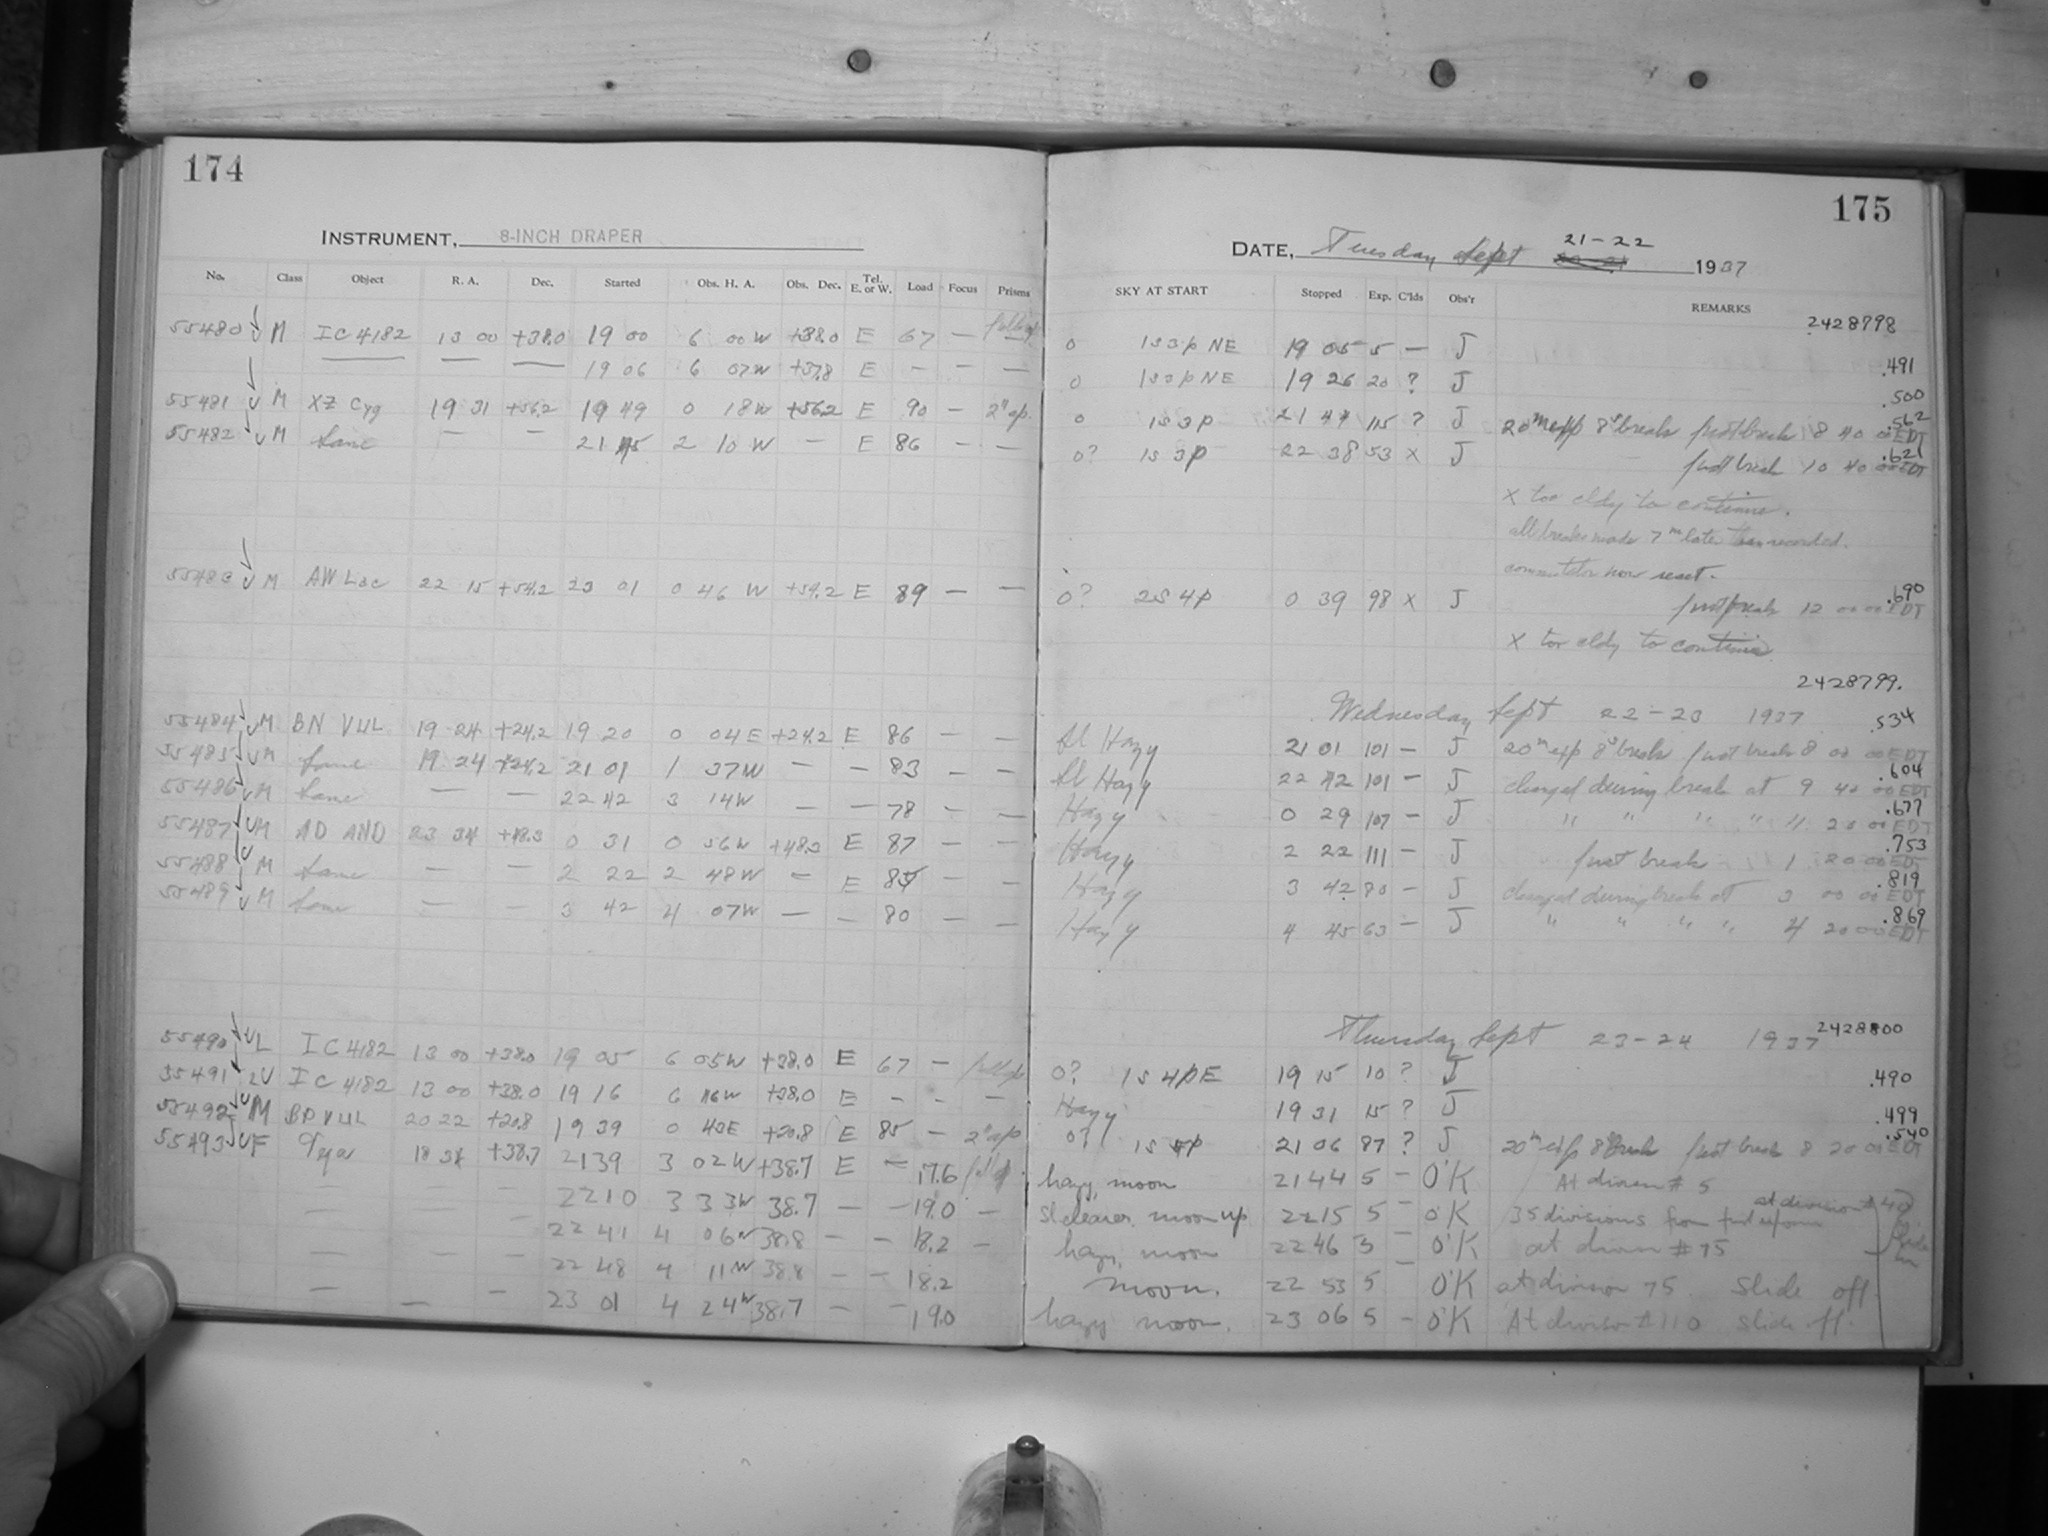 174
INSTRUMENT, 8-INCH DRAPER
No. Class Object R. A. Dec. Started Obs. H. A. Obs. Dec. Tel. E. or W. Load Focus Prisms
55480 M IC 4182 13 00 +38.0 19 00 6 00 W +38.0 E 67 —
— — — 19 06 6 07 W +37.8 E — — —
55481 M XZ Cyg 19 31 +56.2 19 49 0 18 W +56.2 E 90 — 2" ap.
55482 M Same — — 21 45 2 10 W — E 86 — —
55483 M AW Lac 22 15 +54.2 23 01 0 46 W +54.2 E 89 — —
55484 M BN VUL 19 24 +24.2 19 20 0 04 E +24.2 E 86 — —
55485 M Same 19 24 +24.2 21 01 1 37 W — — 83 — —
55486 M Same — — 22 42 3 14 W — — 78 — —
55487 M AD AND 23 34 +48.3 0 31 0 56 W +48.3 E 87 — —
55488 M Same — — 2 22 2 48 W — E 85 — —
55489 M Same — — 3 42 4 07 W — — 80 — —
55490 L IC 4182 13 00 +38.0 19 05 6 05 W +38.0 E 67 — full ap
55491 L IC 4182 13 00 +38.0 19 16 6 16 W +38.0 E — — —
55492 M BP VUL 20 22 +20.8 19 39 0 43 E +20.8 E 85 — 2" ap
55493 F 18 34 +38.7 21 39 3 02 W +38.7 E — 17.6
— — — 22 10 3 33 W 38.7 — — 19.0 —
— — — 22 41 4 06 W 38.8 — — 18.2 —
— — — 22 48 4 11 W 38.8 — — 18.2
— — — 23 01 4 24 W 38.7 — — 19.0
175
DATE, Tuesday Sept 21-22 1937
SKY AT START Stopped Exp. C'lds Obs'r REMARKS
2428798
0 1s 3p NE 19 05 5 — J .491
0 1s 3p NE 19 26 20 ? J .500
0 1s 3p 21 44 115 ? J 20m exp 8s breaks first break 8 40 00 EDT .562
0? 1s 3p 22 38 53 x J first break 10 40 00 EDT .621
x too cldy to continue.
all breaks made 7m late than recorded.
commutator now reset.
0? 2s 4p 0 39 98 x J first break 12 00 00 EDT .690
x too cldy to continue
2428799.
Wednesday Sept 22-23 1937 .534
Sl Hazy 21 01 101 — J 20m exp 8s breaks first break 8 00 00 EDT
Sl Hazy 22 42 101 — J changed during break at 9 40 00 EDT .604
Hazy 0 29 107 — J " " " " 11 20 00 EDT .677
Hazy 2 22 111 — J first break 1 20 00 EDT .753
Hazy 3 42 80 — J changed during break at 3 00 00 EDT .819
Hazy 4 45 63 — J " " " " 4 20 00 EDT .869
Thursday Sept 23-24 1937 2428800
0? 1s 4p E 19 15 10 ? J .490
Hazy 19 31 15 ? J .499
0? 1s 4p 21 06 87 ? J 20m exp 8s break first break 8 20 00 EDT .540
hazy, moon 21 44 5 — O'K At divison # 5
sl clearer moon up 22 15 5 — O'K 35 divisions from at division # 40
hazy, moon 22 46 5 — O'K at divison # 75
moon. 22 53 5 — O'K at divison 75 Slide off.
hazy moon. 23 06 5 — O'K At divison # 110 slide off.